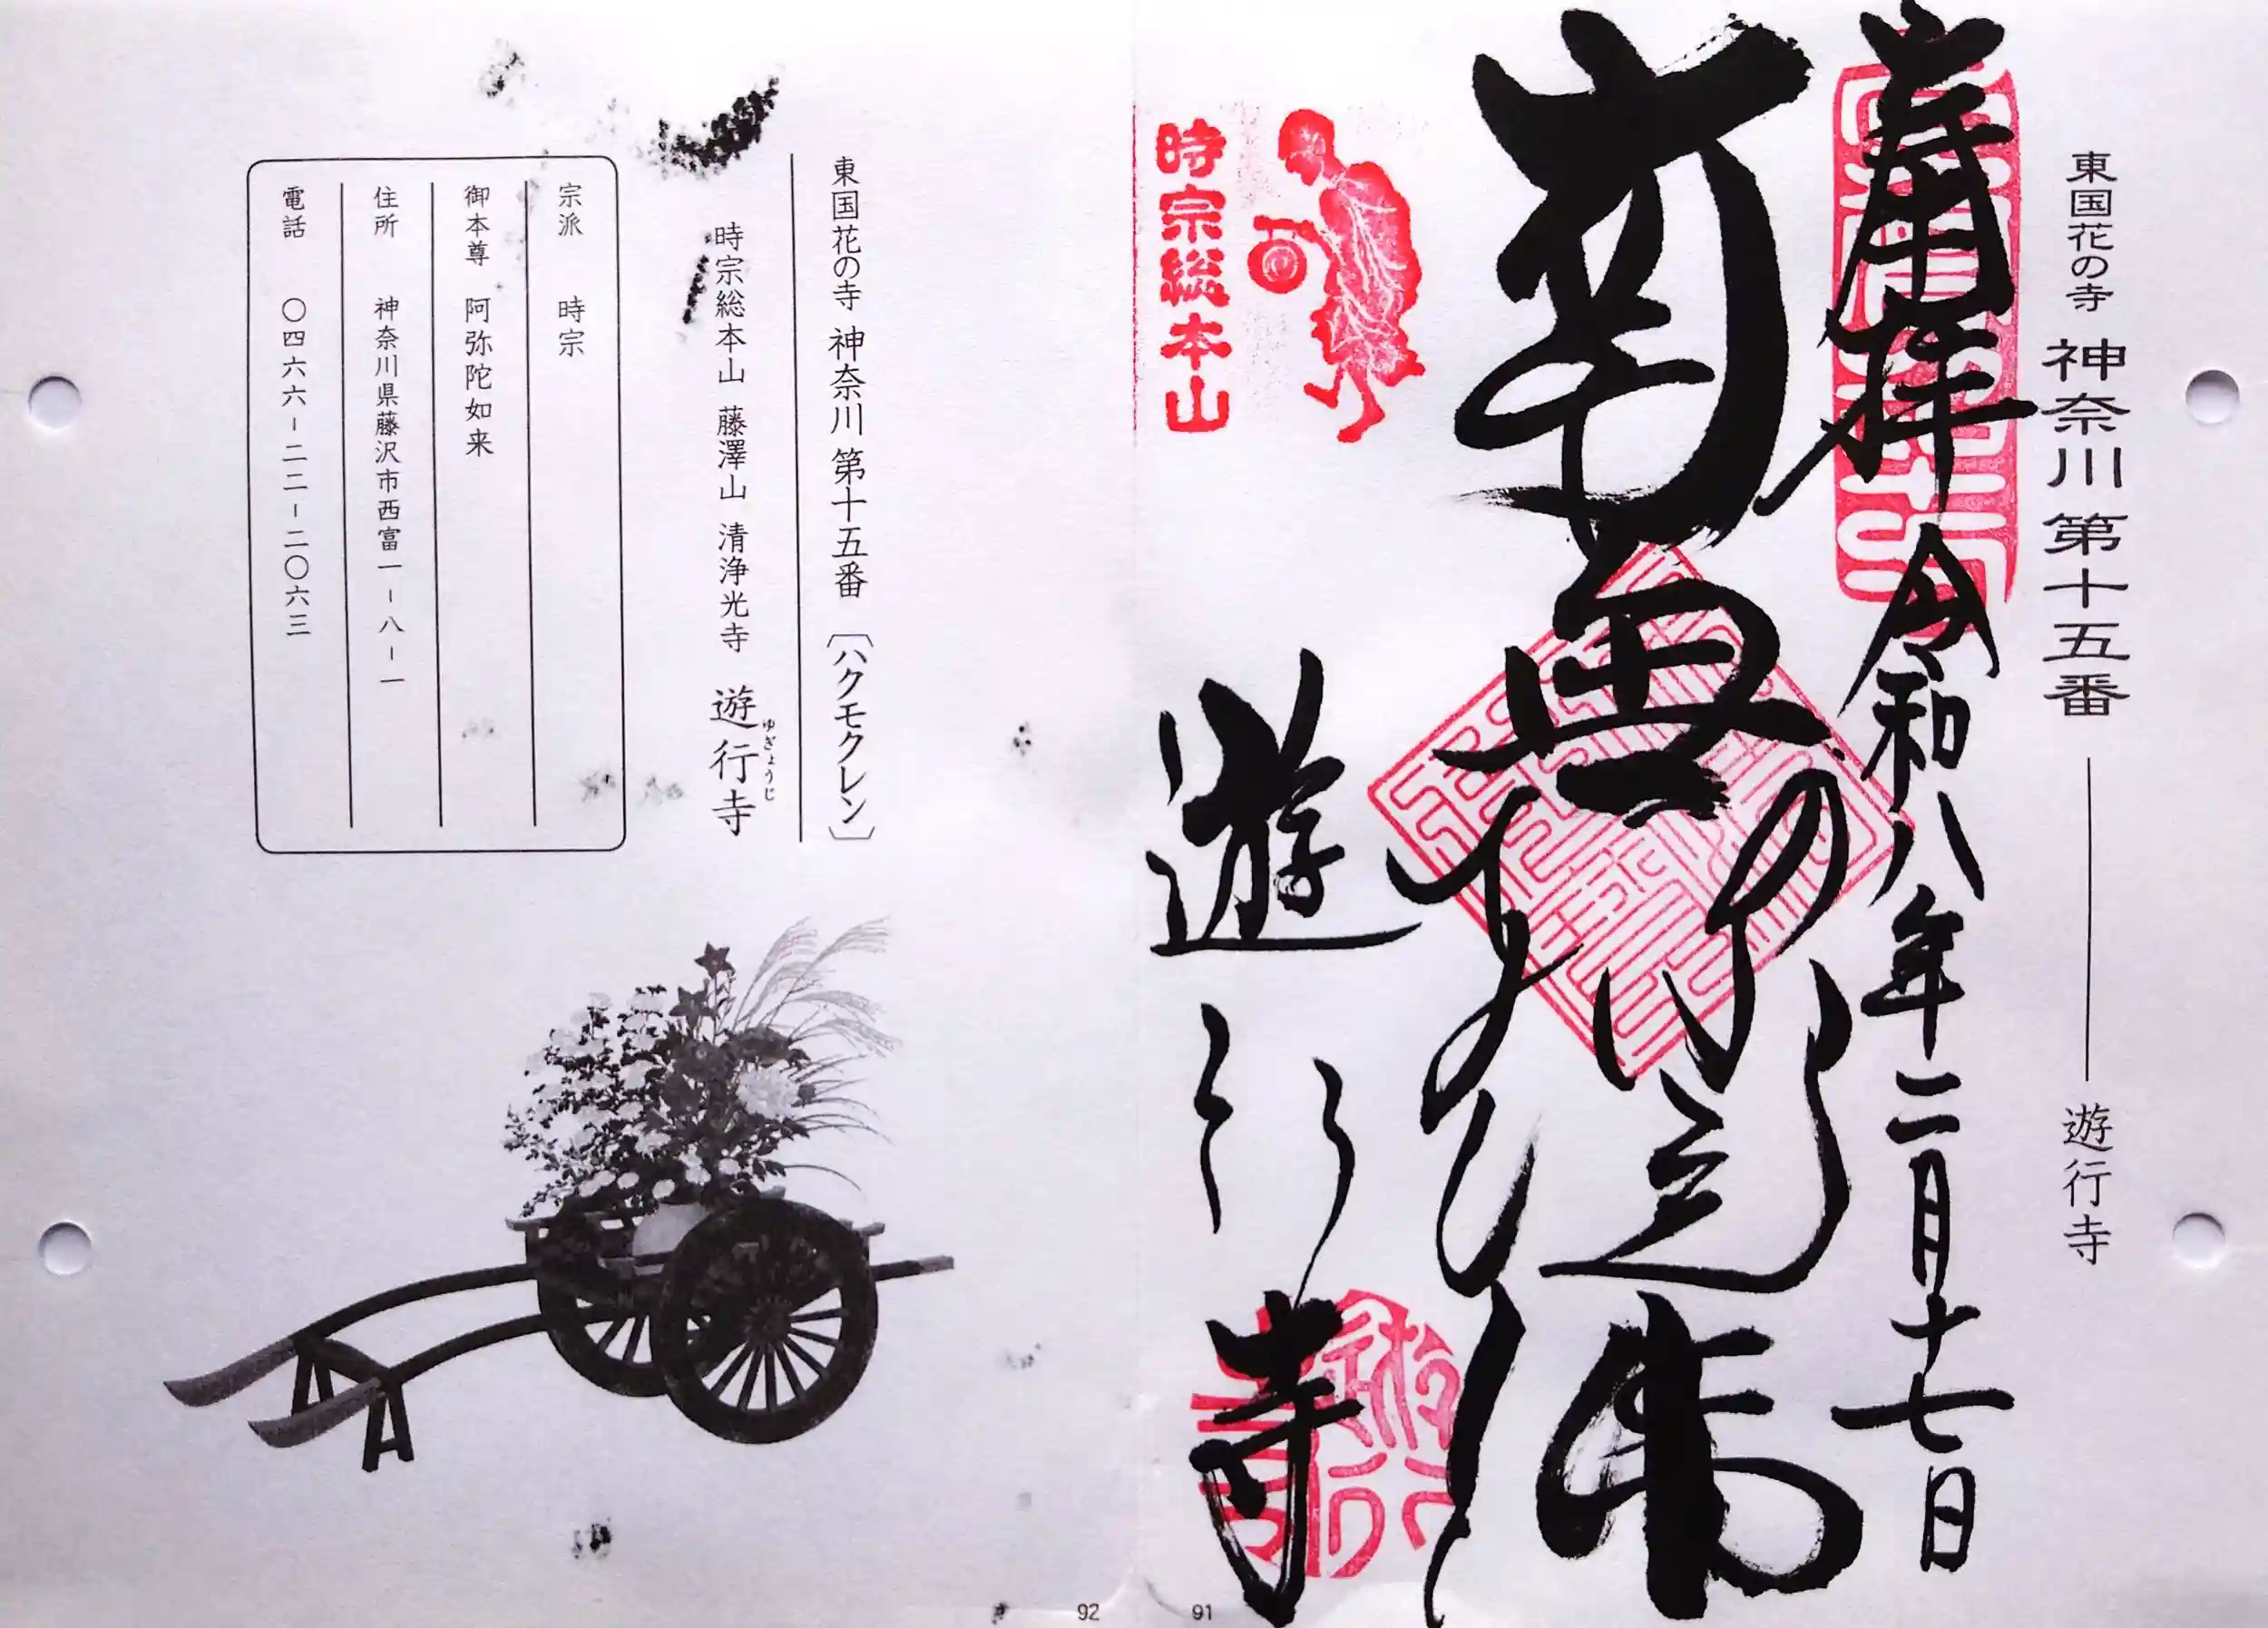 東国花の寺 神奈川 第十五番 遊行寺
奉拝 令和八年二月十七日
南無阿弥陀佛
遊行寺
時宗総本山
東国花の寺 神奈川 第十五番 〔ハクモクレン〕
時宗総本山 藤澤山 清浄光寺 遊行寺
ゆぎょうじ
宗派 時宗
御本尊 阿弥陀如来
住所 神奈川県藤沢市西富一-八-一
電話 〇四六六-二二-二〇六三
91
92